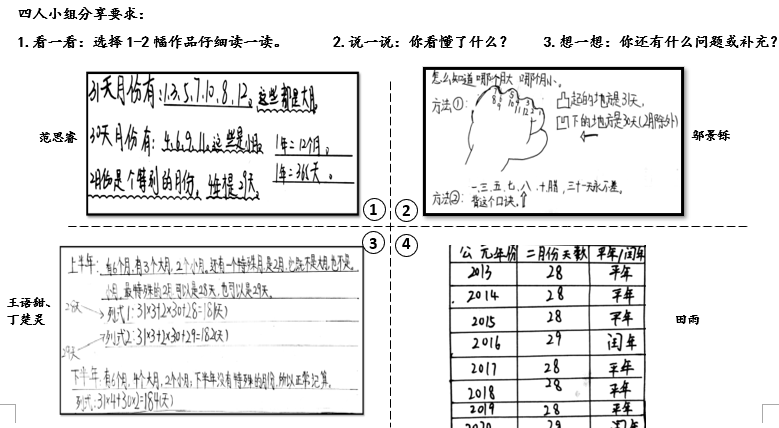 四人小组分享要求：
1.看一看：选择1-2幅作品仔细读一读。 2.说一说：你看懂了什么？ 3.想一想：你还有什么问题或补充？
范思睿
31天月份有：1.3.5.7.10.8.12。这些都是大月。
30天月份有：4.6.9.11。这些是小月。
1年=12个月。
2月份是个特别的月份。
1年=366天。
①
怎么知道哪个月大 哪个月小。
方法①：
凸起的地方是31天，
凹下的地方是30天(2月除外)
方法②：一、三、五、七、八、十、腊，三十一天永不差。
背这个口诀。
邬景铄
②
王语甜、
丁楚灵
③
上半年：有6个月，有3个大月，2个小月。还有一个特殊月是2月，它既不是大月，也不是
小月，最特殊的2月可以是28天，也可以是29天。
28天
列式1：31×3+2×30+28=181(天)
列式2：31×3+2×30+29=182(天)
29天
下半年：有6个月，4个大月，2个小月；下半年没有特殊的月份，所以正常计算。
列式：31×4+30×2=184(天)
④
公元年份 二月份天数 平年/闰年
2013 28 平年
2014 28 平年
2015 28 平年
2016 29 闰年
2017 28 平年
2018 28 平年
2019 28 平年
2020 29 闰年
田雨